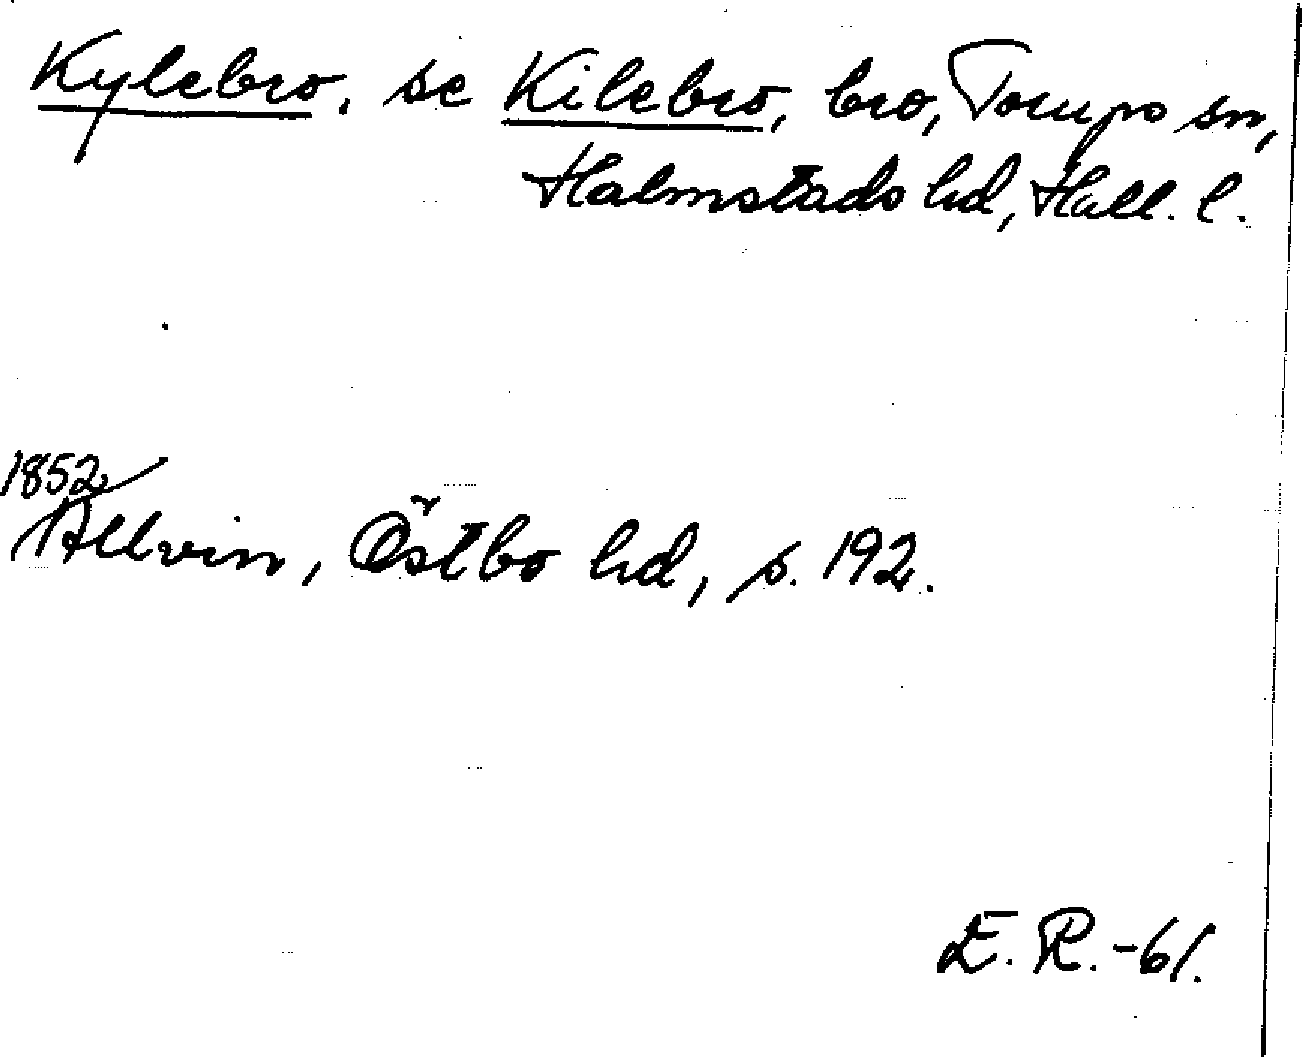 Kylebro, se Kilebro, bro, Torups sn,
Halmstads hd, Hall. l.
1852
Allvin, Östbo hd, s. 192.
E. R. -61.